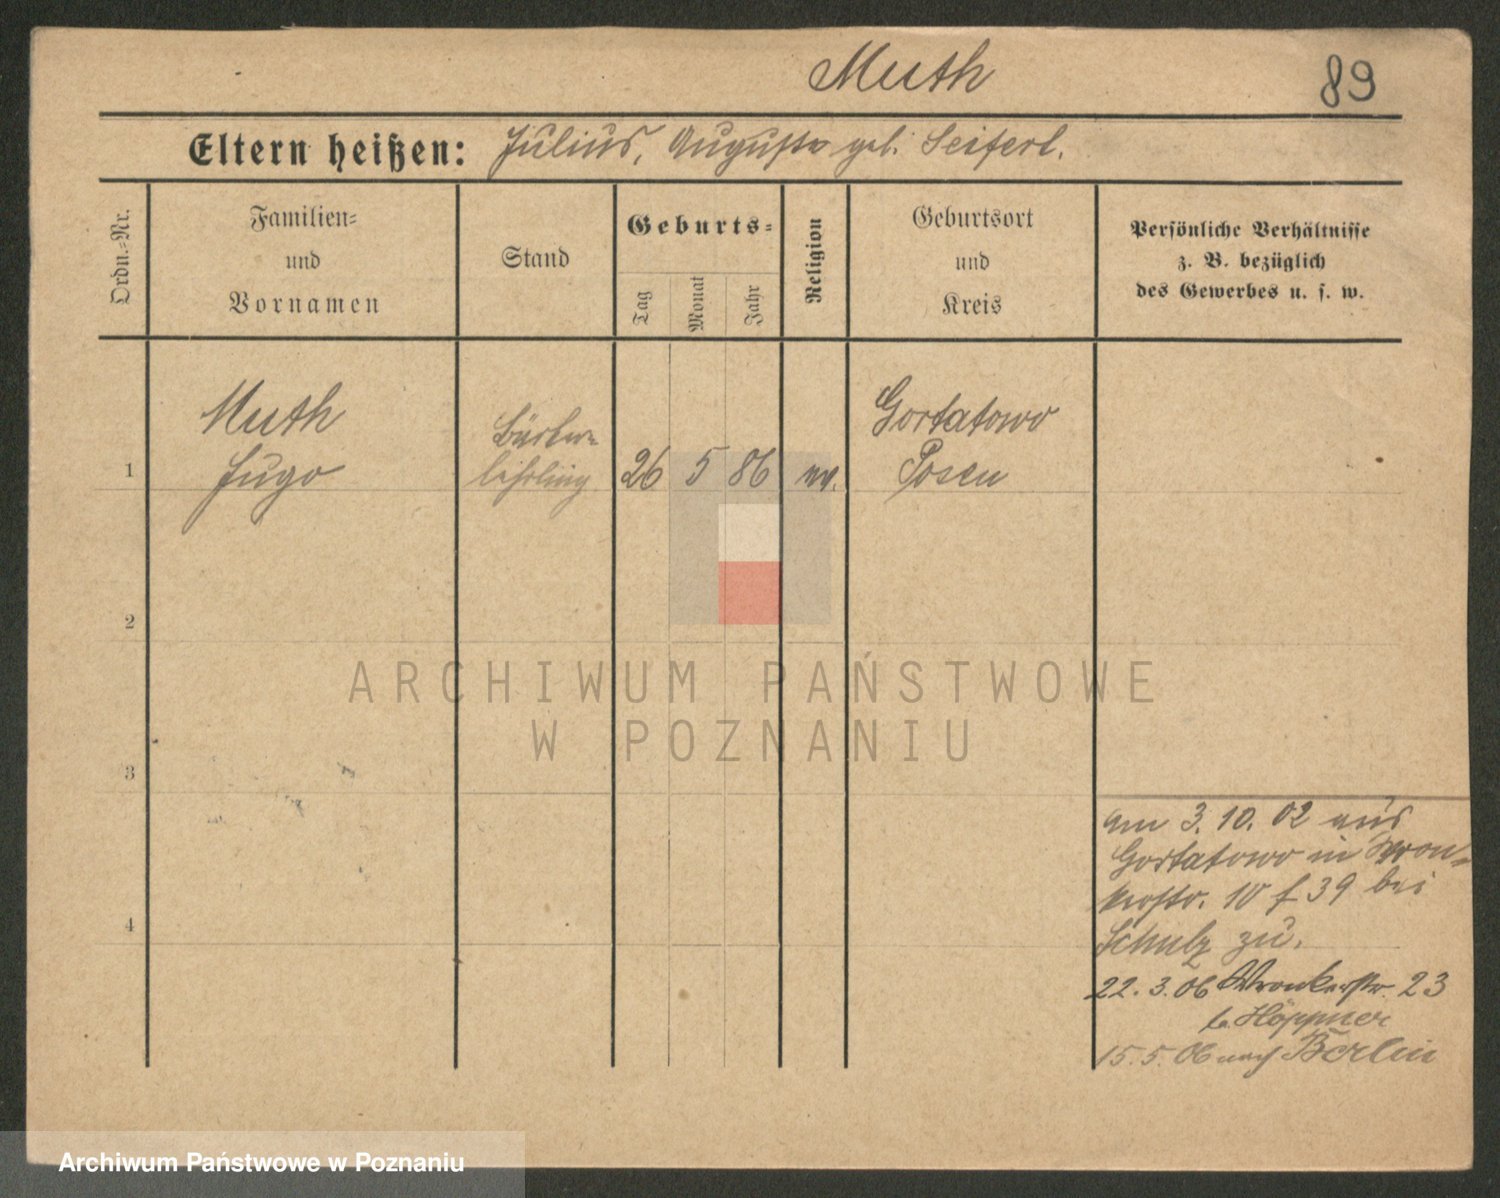 Muth
89
Eltern heißen: Julius, Auguste geb. Seifert.
Ordn.-Nr.
Familien-
und
Vornamen
Stand
Geburts-
Tag
Monat
Jahr
Religion
Geburtsort
und
Kreis
Persönliche Verhältnisse
z. B. bezüglich
des Gewerbes u. s. w.
1
Muth
Hugo
lehrling
26 5 86 ev.
Gortatowo
Posen
2
3
4
am 3. 10. 02 aus
Gortatowo in Wron-
kerstr. 10 f 39 bei
Schulz zu.
22. 3. 06 Wronkerstr. 23
b. Höppner
15. 5. 06 nach Berlin
ARCHIWUM PAŃSTWOWE
W POZNANIU
Archiwum Państwowe w Poznaniu